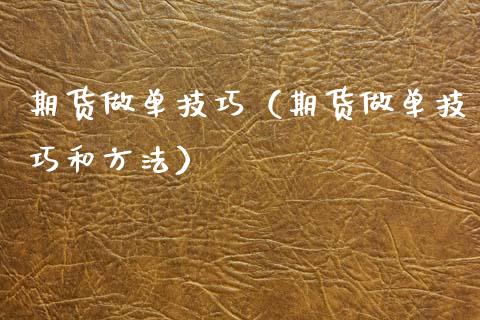 期货做单技巧（期货做单技
巧和方法）